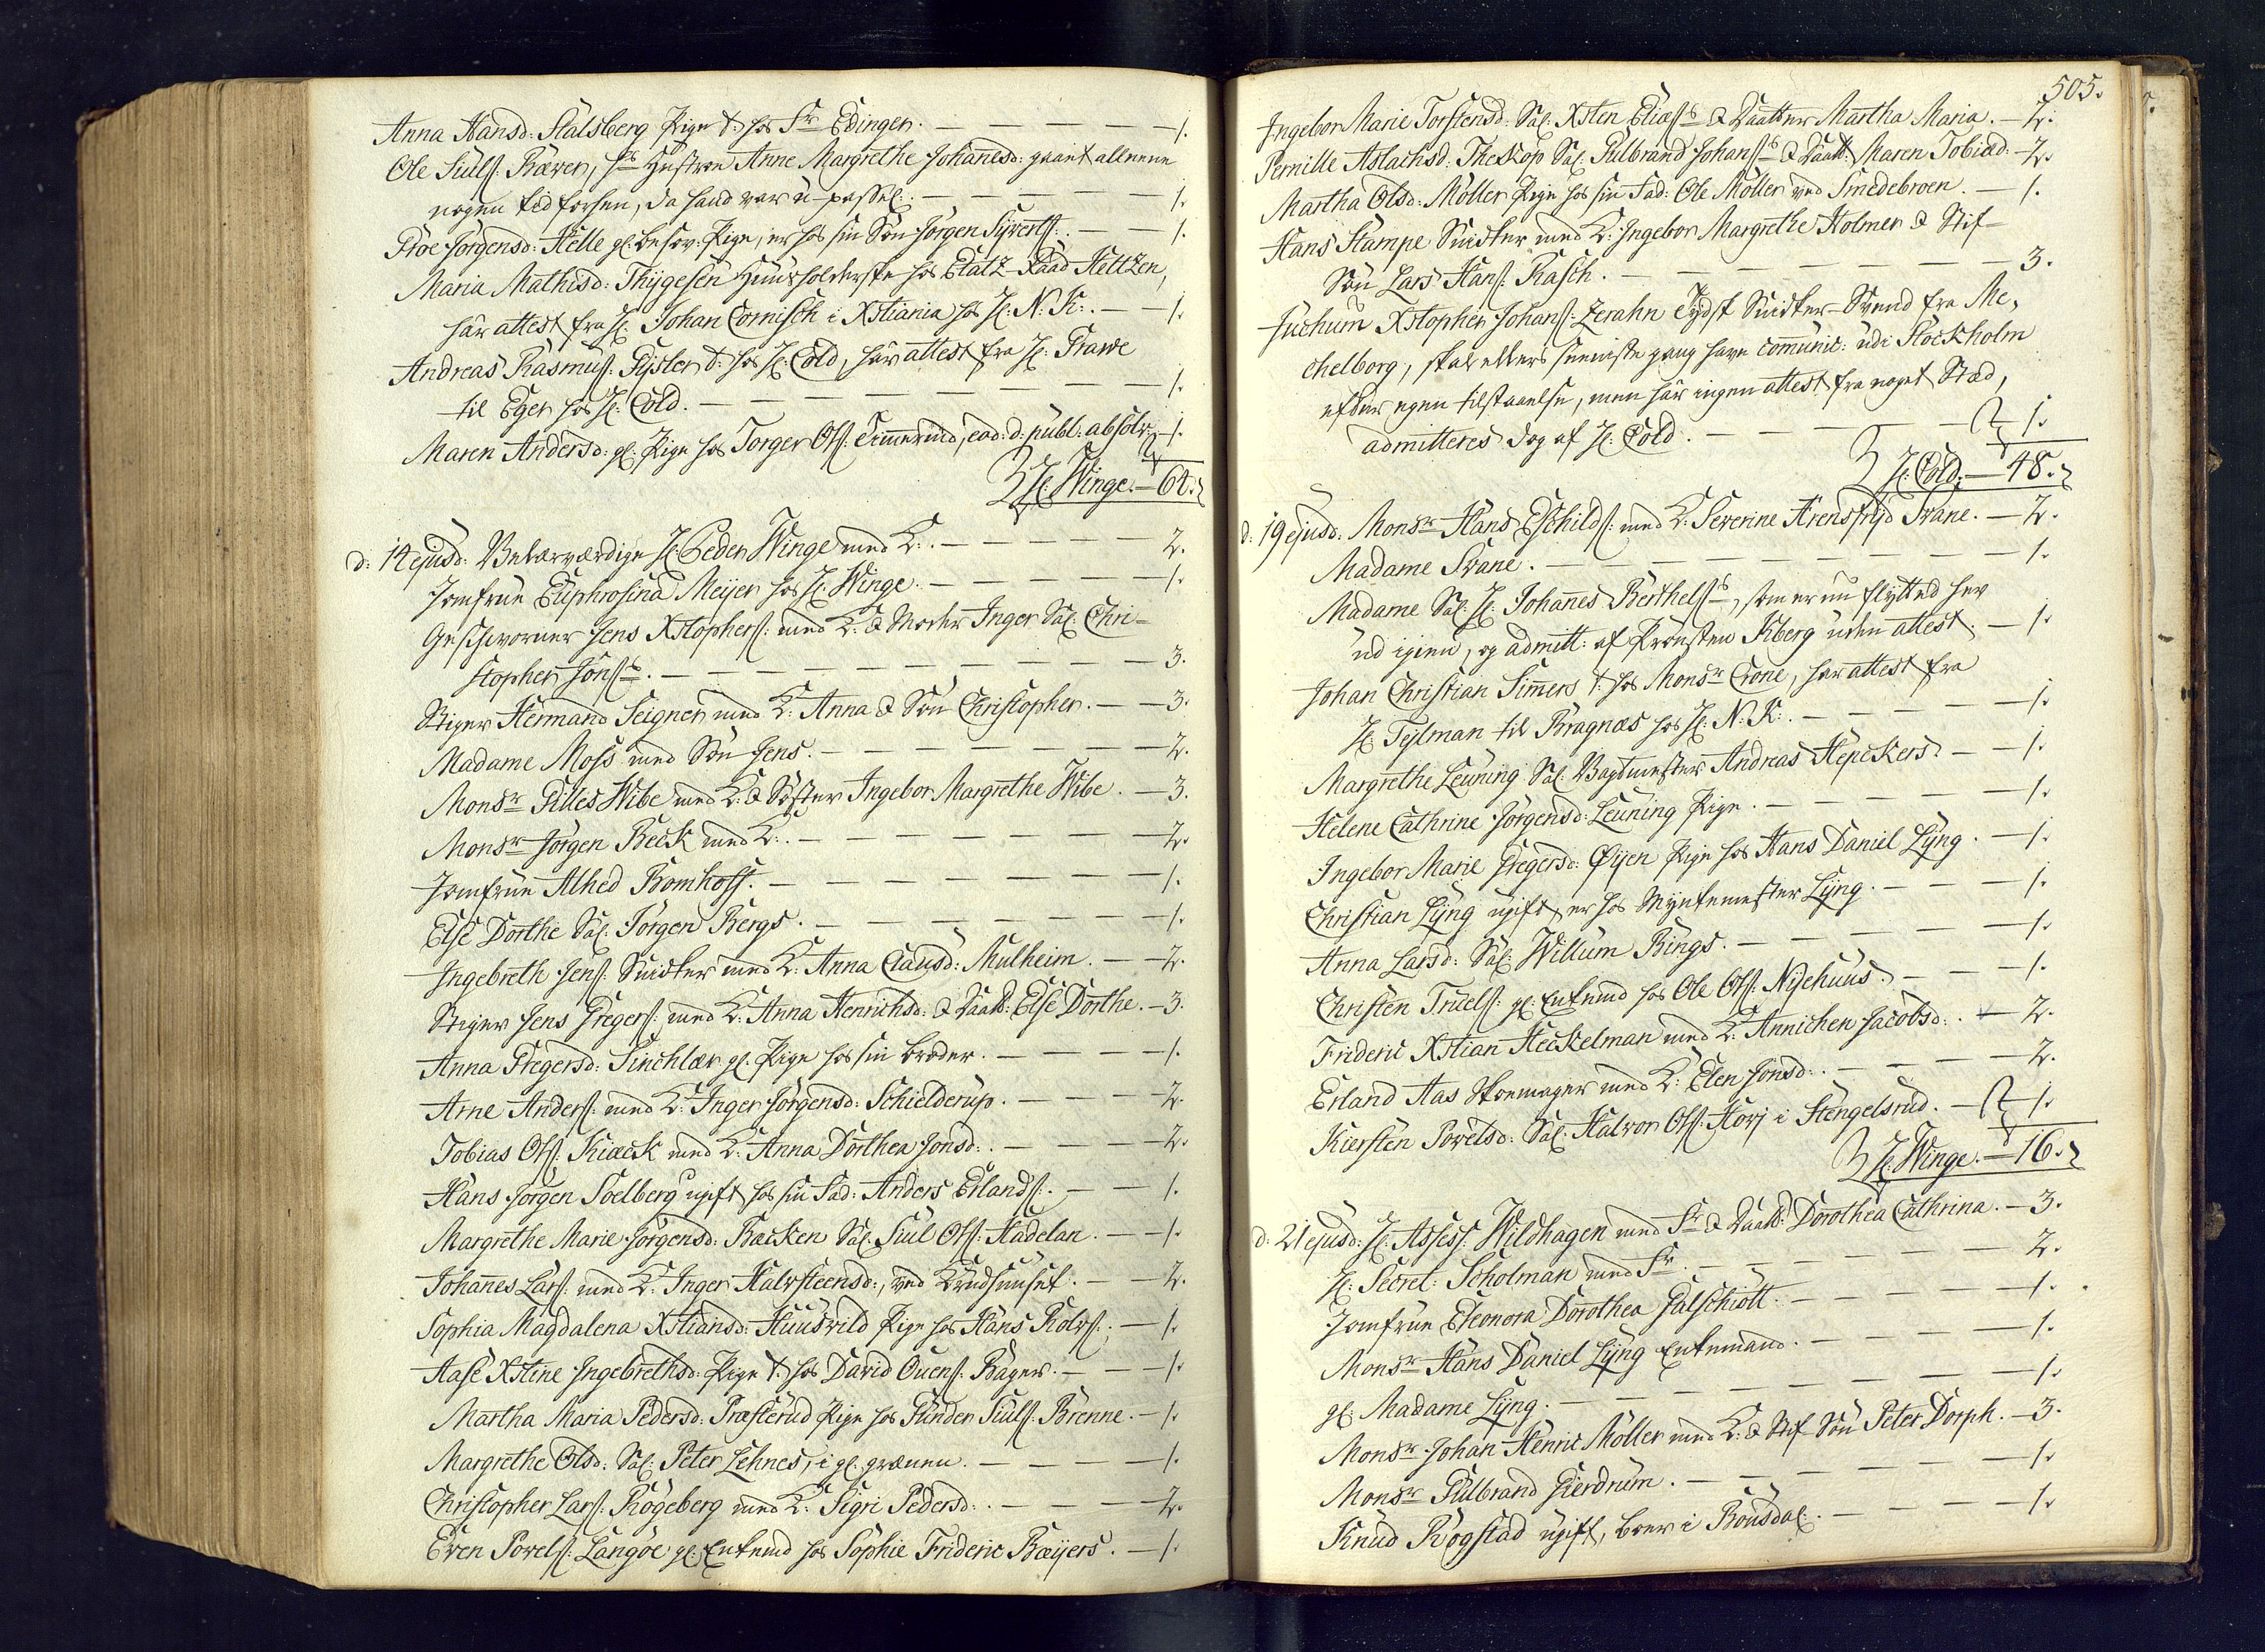 Anna Hansd: Stalsberg Pige t: hos Sr Edinger. — 1.
Ole Siuls: Bæver, hs Hustroe Anne Margrethe Johannesd: gaaet alleene
nogen tid forhen, da hand var u-passel: — 1.
Groe Jörgensd: Helle gl: besov: Pige, er hos sin Sön Jörgen Syverts: — 1.
Maria Mathisd: Thygesen Huusholderske hos Etatz-Raad Heltzen,
hâr attest fra H: Johan Cornisch i Xstiania hos H: N: K: — 1.
Andreas Rasmus: Gysler t: hos H: Cold, hâr attest fra H: Grave
til Eger hos H: Cold. — 1.
Maren Andersd: gl: Pige hos Torger Ols: Timmerud, ead: d: publ: absolv: 1.
H: Winge. — 64.
d: 14 ejusd: Velærværdige H: Peder Winge med K: — 2.
Jomfrue Euphrosina Meyer hos H: Winge. — 1.
Geschworner Jens Xstophers: med K: & Moder Inger Sal: Chri-
stopher Jöns — 3.
Stiger Hermand Seigner med K: Anna & Sön Christopher. — 3.
Madame Moss med Sön Jens. — 2.
Monsr Gilles Wibe med K: & Söster Ingebor Margrethe Wibe. — 3.
Monsr Jörgen Beck med K: — 2.
Jomfrue Alhed Bomhoff. — 1.
Else Dorthe Sal: Jörgen Bergs. — 1.
Ingebreth Jens: Snidker med K: Anna Clausd: Mulheim. — 2.
Stiger Jens Gregers: med K: Anna Henrichsd: & Daatt: Else Dorthe. — 3.
Anna Gregersd: Sinchlar gl: Pige hos sin broder. — 1.
Arne Anders: med K: Inger Jörgensd: Schielderup. — 2.
Tobias Ols: Kiæck med K: Anna Dorthea Jonsd: — 2.
Hans Jörgen Soelberg ugift hos sin Fad: Anders Erlands: — 1.
Margrethe Marie Jörgensd: Backen Sal: Siul Ols: Hadelan. — 1.
Johannes Lars: med K: Inger Halvsteensd:, ved Krudhuuset. — 2.
Sophia Magdalena Xstiansd: Huusvild Pige hos Hans Rolvs: — 1.
Aase Xstine Ingebrethsd: Pige t: hos David Ouens: Bager. — 1.
Martha Maria Pedersd: Præsterud Pige hos Gunder Siuls: Brenne. — 1.
Margrethe Olsd: Sal: Peter Lehnes, i gl: grænen. — 1.
Christopher Lars: Rögeberg med K: Sigri Pedersd: — 2.
Even Povels: Langöe gl: Enkemd hos Sophie Frideric Bæyers. — 1.
505.
Ingebor Marie Torstensd: Sal: Xsten Elias & Daatter Martha Maria. — 2.
Pernille Aslachsd: Theskop Sal: Gulbrand Johans & Daatt: Maren Tobiæd: — 2.
Martha Olsd: Möller Pige hos sin Fad: Ole Möller ved Smedebroen. — 1.
Hans Stampe Snidker med K: Ingebor Margrethe Holmer & Stif-
Sön Lars Hans: Rasch. — 3.
Juchum Xstopher Johans: Zerahn Tydsk Snidker-Svend fra Me,
chelborg, skal ellers seeniste gang have communic: udi Stockholm
efter egen tilstaaelse, men hâr ingen attest fra noget Stæd,
admitteres dog af H: Cold. — 1.
H: Cold. — 48.
d: 19 ejusd: Monsr Hans Eschilds: med K: Severine Arensfryd Svane. — 2.
Madame Svane. — 1.
Madame Sal: H: Johannes Berthels, som er nu flytted her
ud igien, og admitt: af Provsten Kberg uden attest. — 1.
Johan Christian Simers t: hos Monsr Crone, har attest fra
H: Tylman til Bragnæs hos H: N: K: — 1.
Margrethe Leuning Sal: Vagtmester Andreas Hepckers — 1.
Helene Cathrine Jörgensd: Leuning Pige. — 1.
Ingebor Marie Gregersd: Öyen Pige hos Hans Daniel Lyng. — 1.
Christian Lyng ugift, er hos Myntemester Lyng. — 1.
Anna Larsd: Sal: Willum Bings. — 1.
Christen Truels: gl: Enkemd hos Ole Ols: Nyehuus. — 1.
Frideric Xstian Heckelman med K: Annichen Jacobsd: — 2.
Erland Aas Skoemager med K: Elen Jonsd: — 2.
Kiersten Povelsd: Sal: Halvor Ols: Horj i Stengelsrud. — 1.
H: Winge. — 16.
d: 21 ejusd: H: Assess: Wildhagen med Fr: & Daatt: Dorothea Cathrina. — 3.
H: Secret: Scholman med Fr: — 2.
Jomfrue Eleonora Dorothea Gulschiött. — 1.
Monsr Hans Daniel Lyng Enkemand. — 1.
gl: Madame Lyng. — 1.
Monsr Johan Henric Möller med K: & Stif-Sön Peter Dorph. — 3.
Monsr Gulbrand Gierdrum. — 1.
Knud Rogstad ugift, boer i Bousdal: — 1.